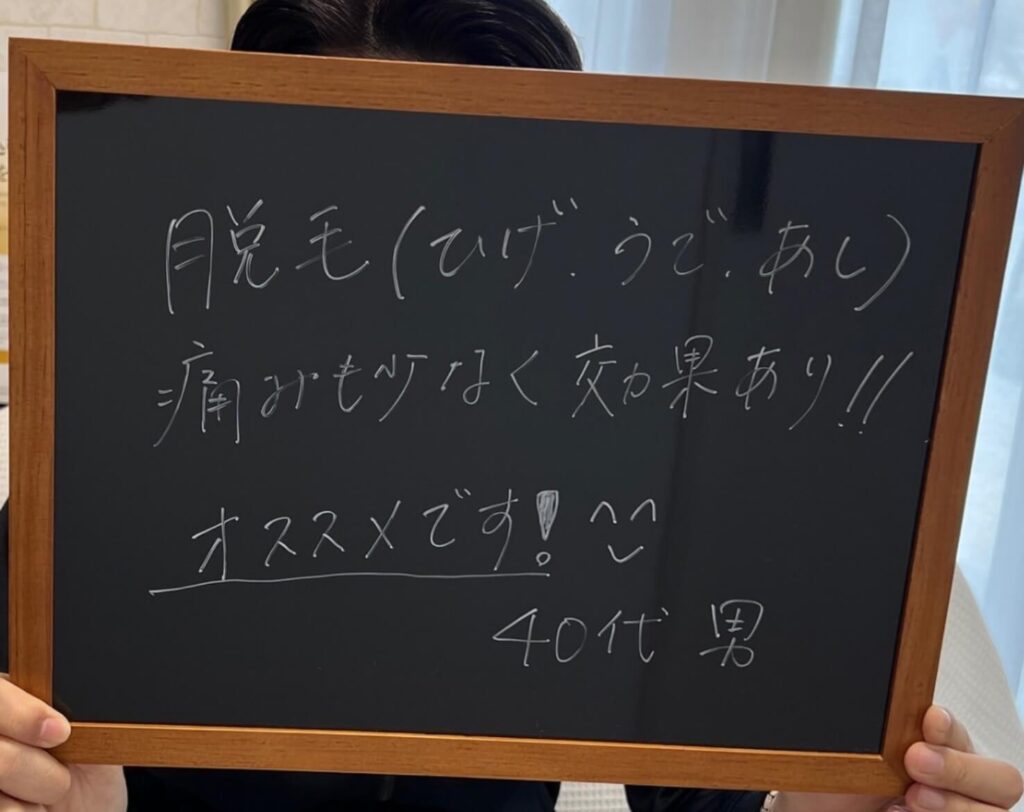 脱毛(ひげ.うで.あし)
痛みも少なく効果あり!!
オススメです! ^^
40代 男